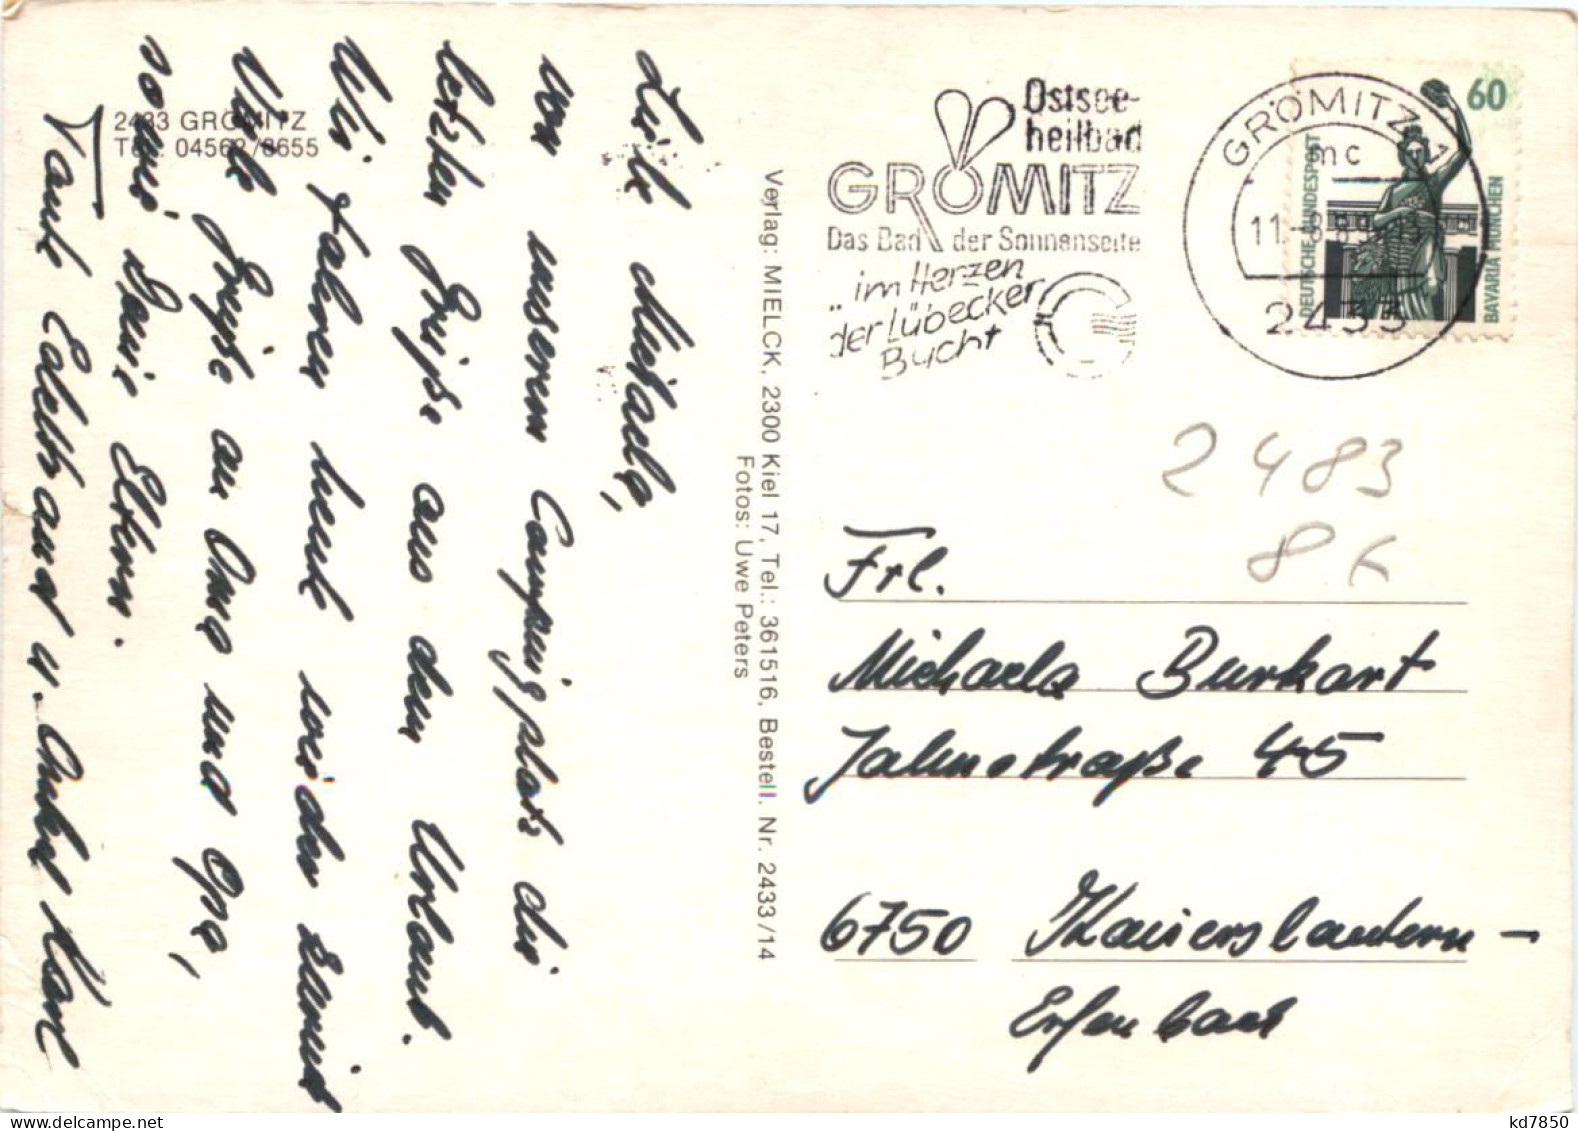 Liebe Michaela,
von unserem Campingplatz die
letzten Grüße aus dem Urlaub.
Wir fahren heute wieder zurück
Viele Grüße an Oma und Opa,
sowie Deine Eltern.
Tante Edeltraud u. Onkel Karl
2433 GRÖMITZ
Tel. 04562/8655
Verlag: MIELCK, 2300 Kiel 17, Tel.: 361516, Bestell. Nr. 2433/14
Fotos: Uwe Peters
Ostsee-
heilbad
GRÖMITZ
Das Bad der Sonnenseite
... im Herzen
der Lübecker
Bucht
GRÖMITZ 1
mc
2433
60
DEUTSCHE BUNDESPOST
BAVARIA MÜNCHEN
2483
8 €
Frl.
Michaela Burkart
Jahnstraße 45
6750 Kaiserslautern-
Erfenbach
kd7850